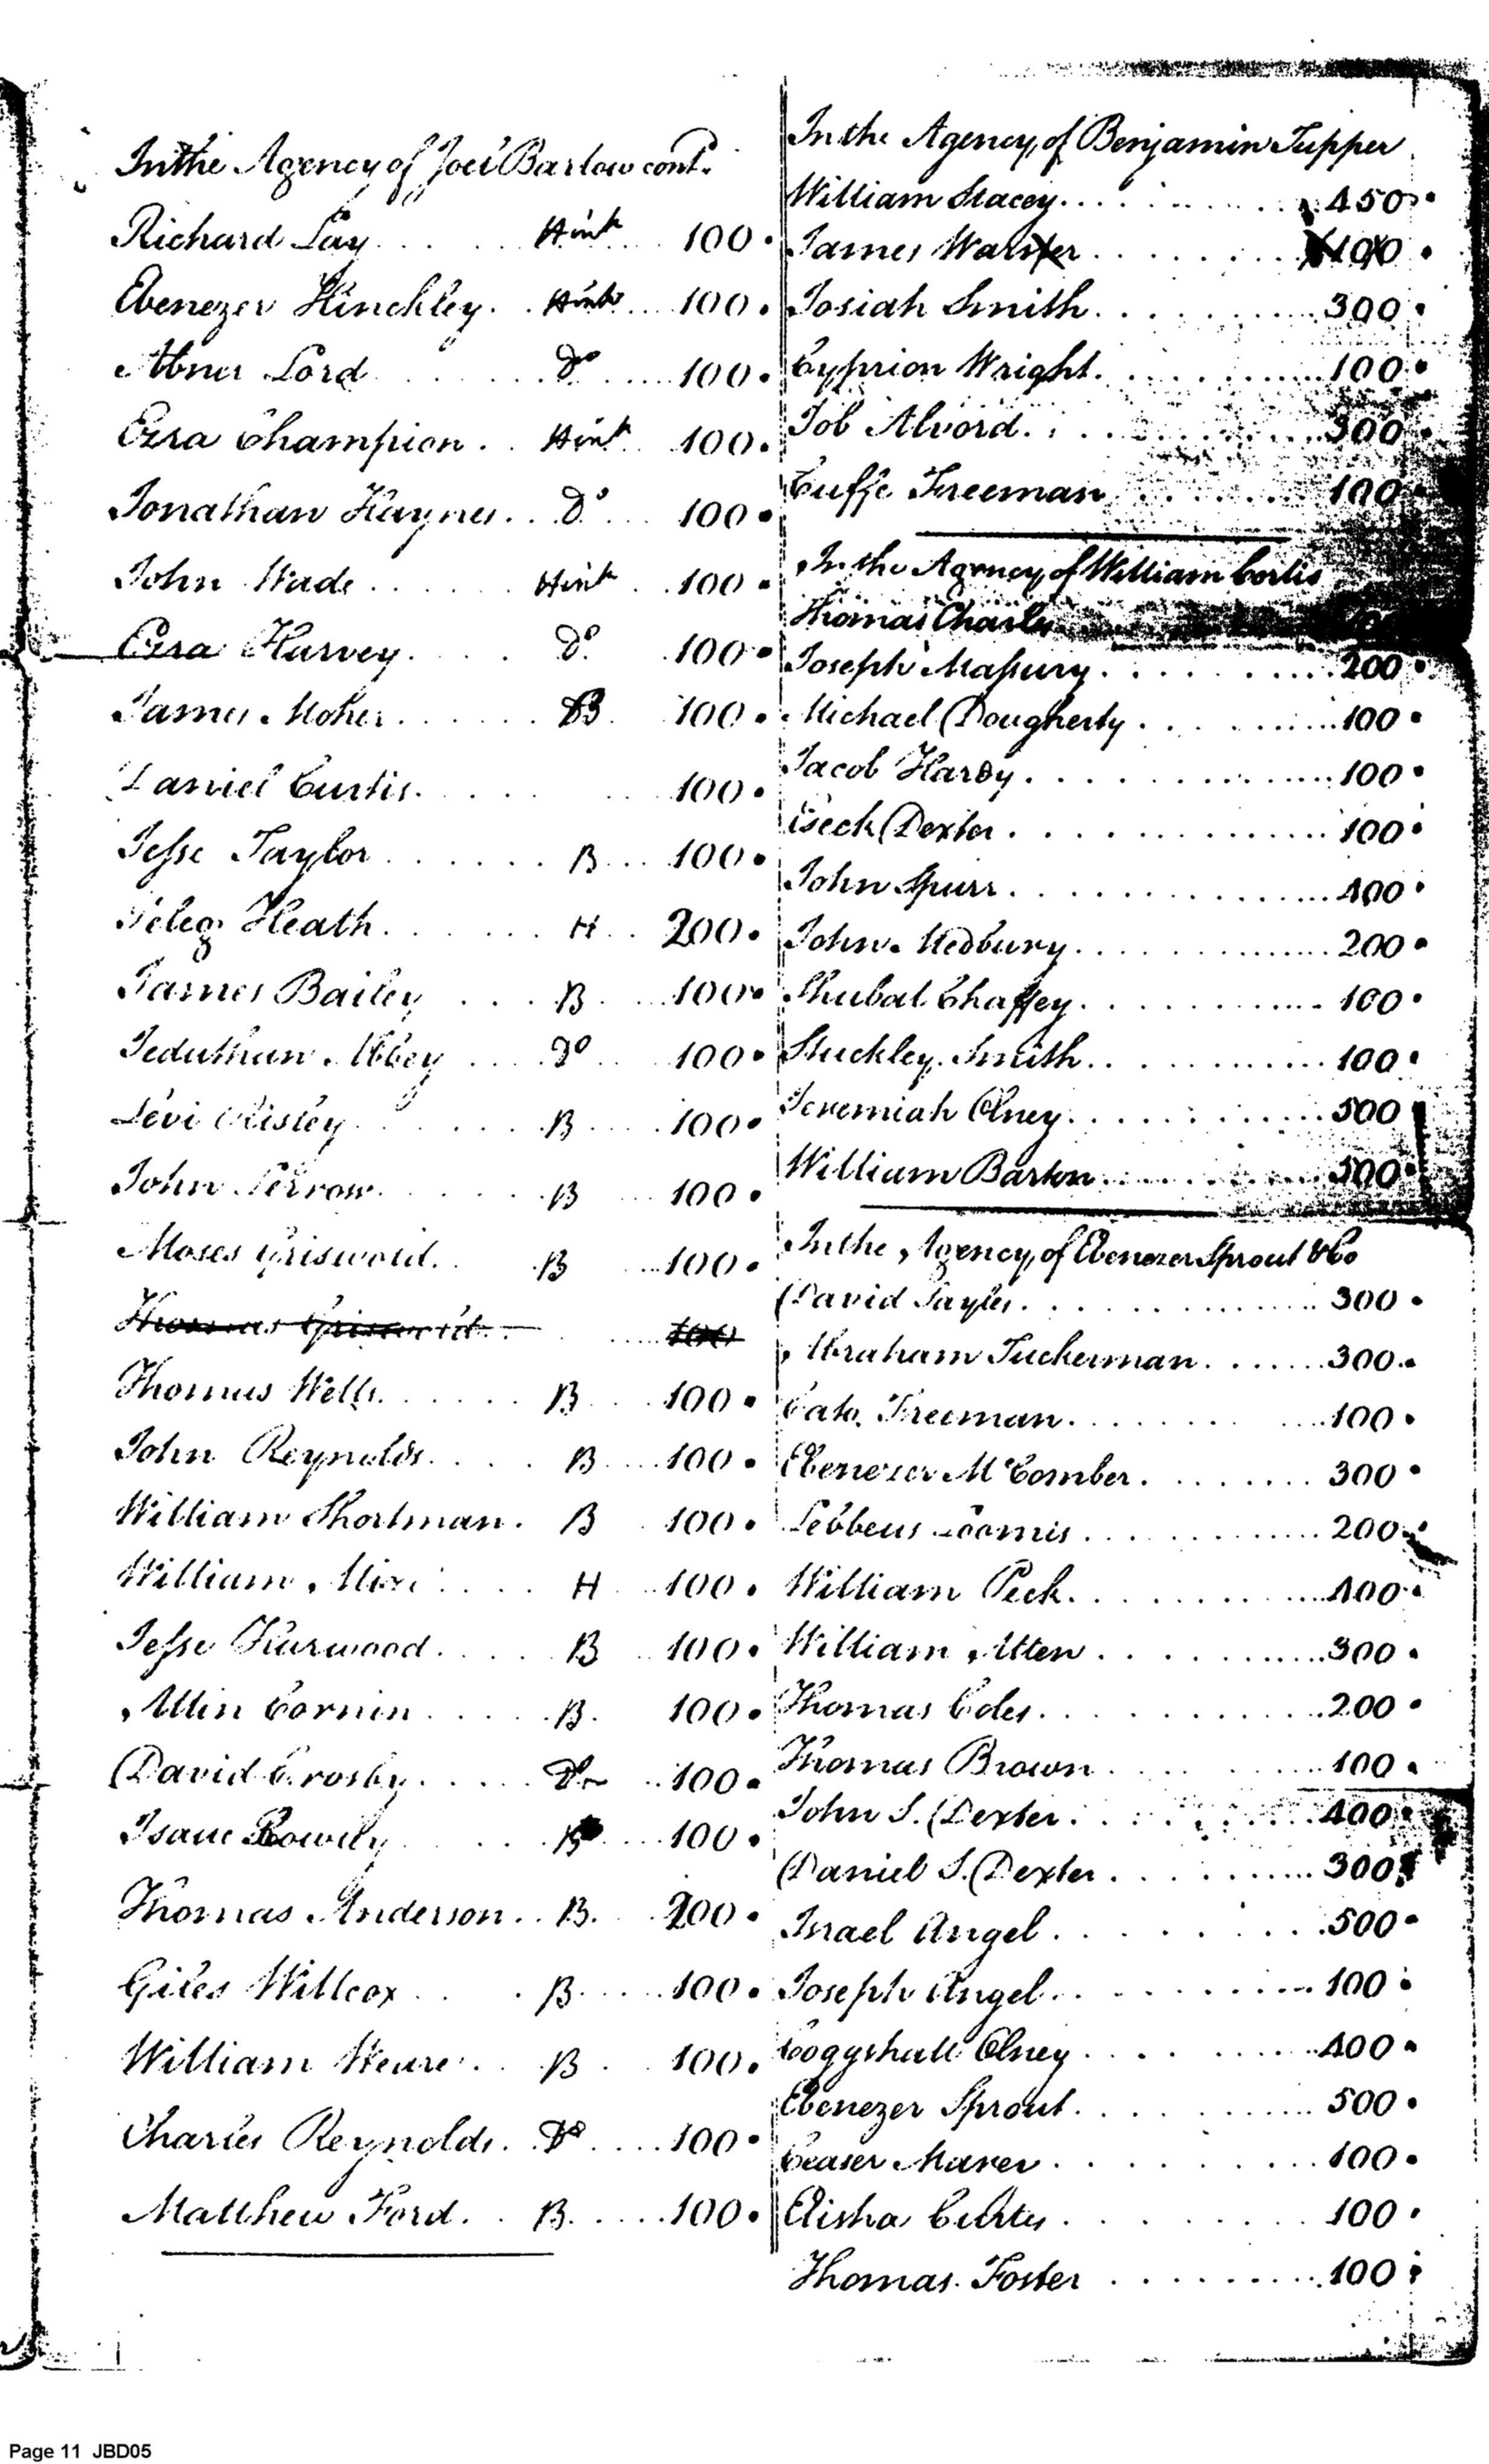 In the Agency of Joel Barlow cont.
Richard Lay . . . . Hink . . . 100 .
Ebenezer Hinckley . . Hink . . . 100 .
Abner Lord . . . . . . . do . . . . . 100 .
Ezra Champion . . Hink . . 100 .
Jonathan Haynes . . . do . . . 100 .
John Wade . . . . . . Hink . . 100 .
Ezra Harvey . . . . do . . 100 .
James Moher . . . . . . B . . 100 .
Daniel Curtis . . . . . . 100 .
Jesse Taylor . . . . . . B . . . 100 .
Peleg Heath . . . . . . H . . 200 .
James Bailey . . . . B . . . 100 .
Jeduthun Abbey . . . . do . . . 100 .
Levi Risley . . . . . . B . . . 100 .
John Perrow . . . . . . B 100 .
Moses Griswold . . . B . . . 100 .
Thomas Griswold . . . . . . 100
Thomas Wells . . . . . . B . . . 100 .
John Reynolds . . . . . B . . . 100 .
William Shortman . B . . 100 .
William Mix . . . . H . . . 100 .
Jesse Hurwood . . . . . B . . 100 .
Allin Cornin . . . . . B . . . 100 .
David Crosby . . . . . Do . . 100 .
Isaac Rowley . . . . . B . . . 100 .
Thomas Anderson . . B . . . 200 .
Giles Willcox . . . B . . . . 100 .
William Weare . . . B . . . 100 .
Charles Reynolds . . Do . . . . 100 .
Matthew Ford . . B . . . . . 100 .
In the Agency of Benjamin Tupper
William Stacey . . . . . . . . . 450 .
James Warner . . . . . . . . 100 .
Josiah Smith . . . . . . . . . . 300 .
Cyprion Wright . . . . . . . . . . 100 .
Job Alvord . . . . . . . . . . . 300 .
Cuffe Freeman . . . . . . . . 100 .
In the Agency of William Corlis
Thomas Charly
Joseph Masury . . . . . . . . . . 200 .
Michael Dougherty . . . . . . . . 100 .
Jacob Hardy . . . . . . . . . . . . 100 .
Eseck Dexter . . . . . . . . . . . . 100 .
John Spurr . . . . . . . . . . . . . 400 .
John Medbury . . . . . . . . . . . . 200 .
Shubal Chaffey . . . . . . . . . . . 100 .
Stuckley Smith . . . . . . . . . . . 100 .
Jeremiah Olney . . . . . . . . . . . 500
William Barton . . . . . . . . . . . 500 .
In the Agency of Ebenezer Sprout & Co
David Sayles . . . . . . . . . . . . 300 .
Abraham Tuckerman . . . . . . . 300 .
Cato Freeman . . . . . . . . . . 100 .
Ebenezer McComber . . . . . . . . 300 .
Lebbeus Loomis . . . . . . . . . . . 200 .
William Peck . . . . . . . . . . . . 400 .
William Allen . . . . . . . . . . . . 300 .
Thomas Coles . . . . . . . . . . . . 200 .
Thomas Brown . . . . . . . . . . 100 .
John S. Dexter . . . . . . . . . . 400 .
Daniel S. Dexter . . . . . . . . . . 300
Israel Angel . . . . . . . . . . 500 .
Joseph Angel . . . . . . . . . . . 100 .
Coggshall Olney . . . . . . . . . . 400 .
Ebenezer Sprout . . . . . . . . . . 500 .
Ceaser Maver . . . . . . . . . . 100 .
Elisha Curtis . . . . . . . . . . 100 .
Thomas Foster . . . . . . . . . . 100
Page 11 JBD05